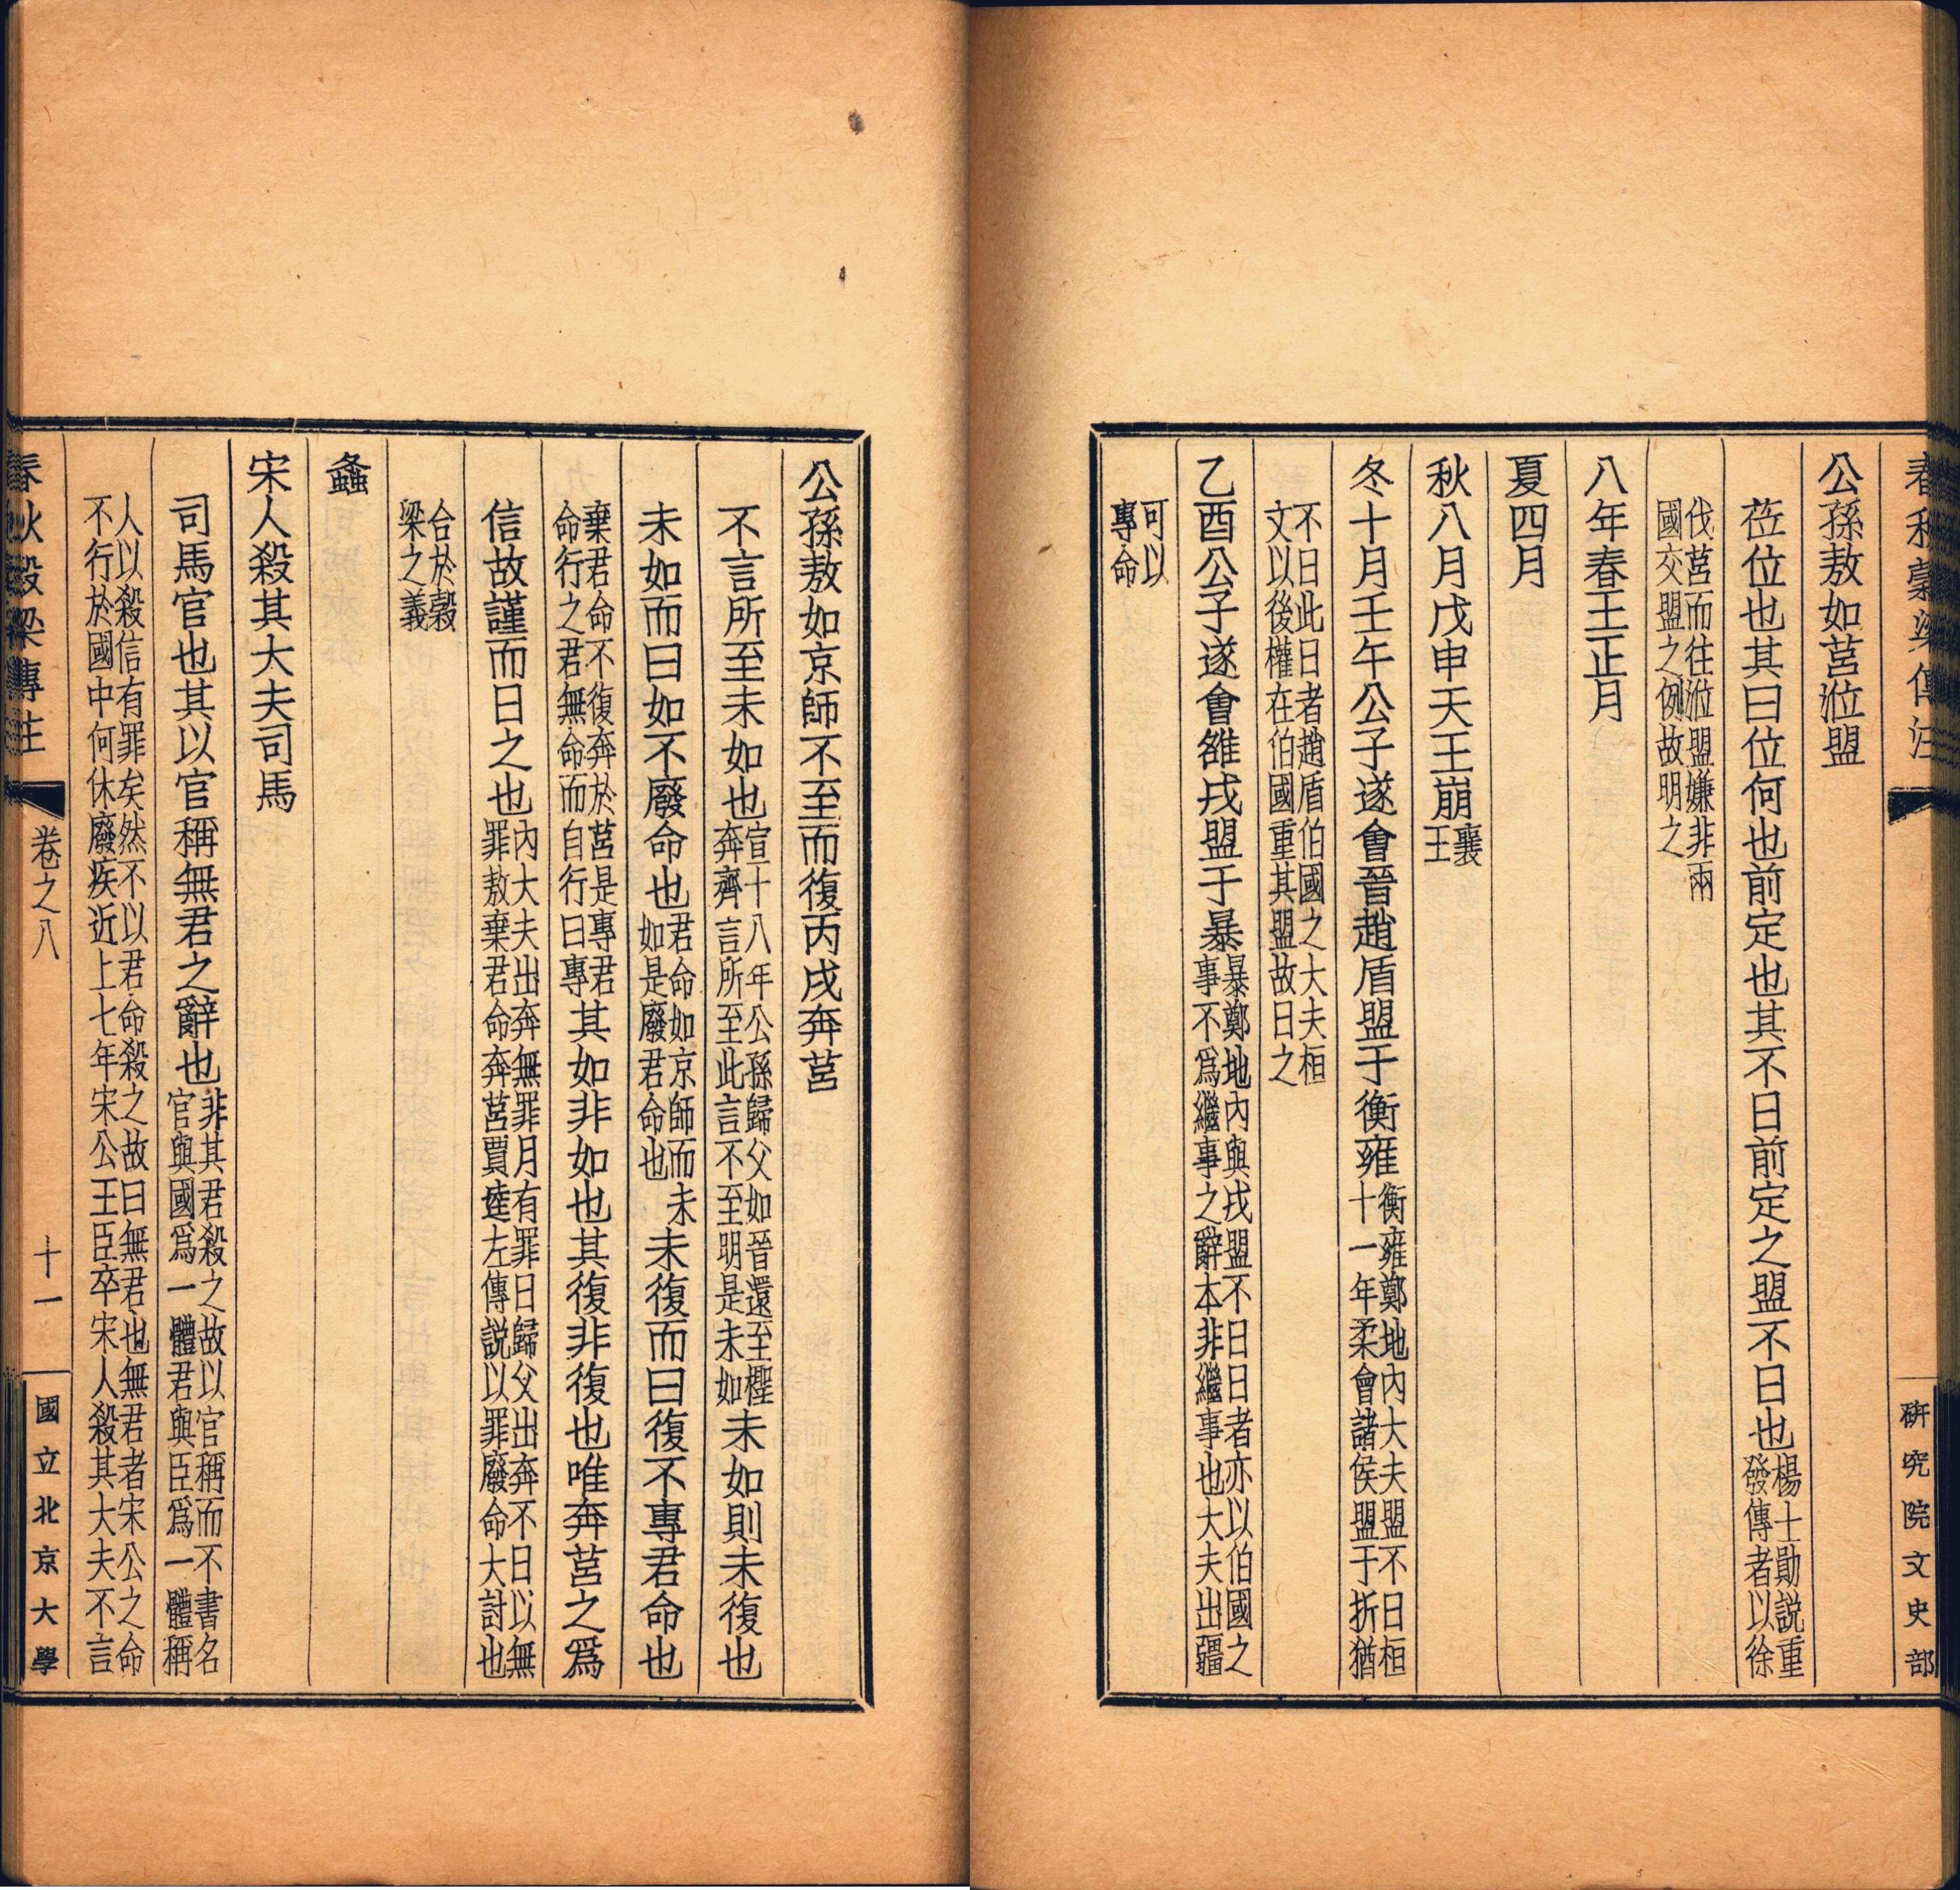 春秋穀梁傳注
研究院文史部
公孫敖如莒涖盟
莅位也其曰位何也前定也其不日前定之盟不日也楊士勛說重發傳者以徐
伐莒而往涖盟嫌非兩國交盟之例故明之
八年春王正月
夏四月
秋八月戊申天王崩襄王
冬十月壬午公子遂會晉趙盾盟于衡雍衡雍鄭地內大夫盟不日桓十一年柔會諸侯盟于折猶
不日此日者趙盾伯國之大夫桓文以後權在伯國重其盟故日之
乙酉公子遂會雒戎盟于暴暴鄭地內與戎盟不日日者亦以伯國之事不爲繼事之辭本非繼事也大夫出疆
可以專命
公孫敖如京師不至而復丙戌奔莒
不言所至未如也宣十八年公孫歸父如晉還至檉奔齊言所至此言不至明是未如未如則未復也
未如而曰如不廢命也君命如京師而未如是廢君命也未復而曰復不專君命也
棄君命不復奔於莒是專君命行之君無命而自行曰專其如非如也其復非復也唯奔莒之爲
信故謹而日之也內大夫出奔無罪月有罪日歸父出奔不日以無罪敖棄君命奔莒賈逵左傳說以罪廢命大討也
合於穀梁之義
螽
宋人殺其大夫司馬
司馬官也其以官稱無君之辭也非其君殺之故以官稱而不書名官與國爲一體君與臣爲一體稱
人以殺信有罪矣然不以君命殺之故曰無君也無君者宋公之命不行於國中何休廢疾近上七年宋公王臣卒宋人殺其大夫不言
春秋穀梁傳注
卷之八
十一
國立北京大學